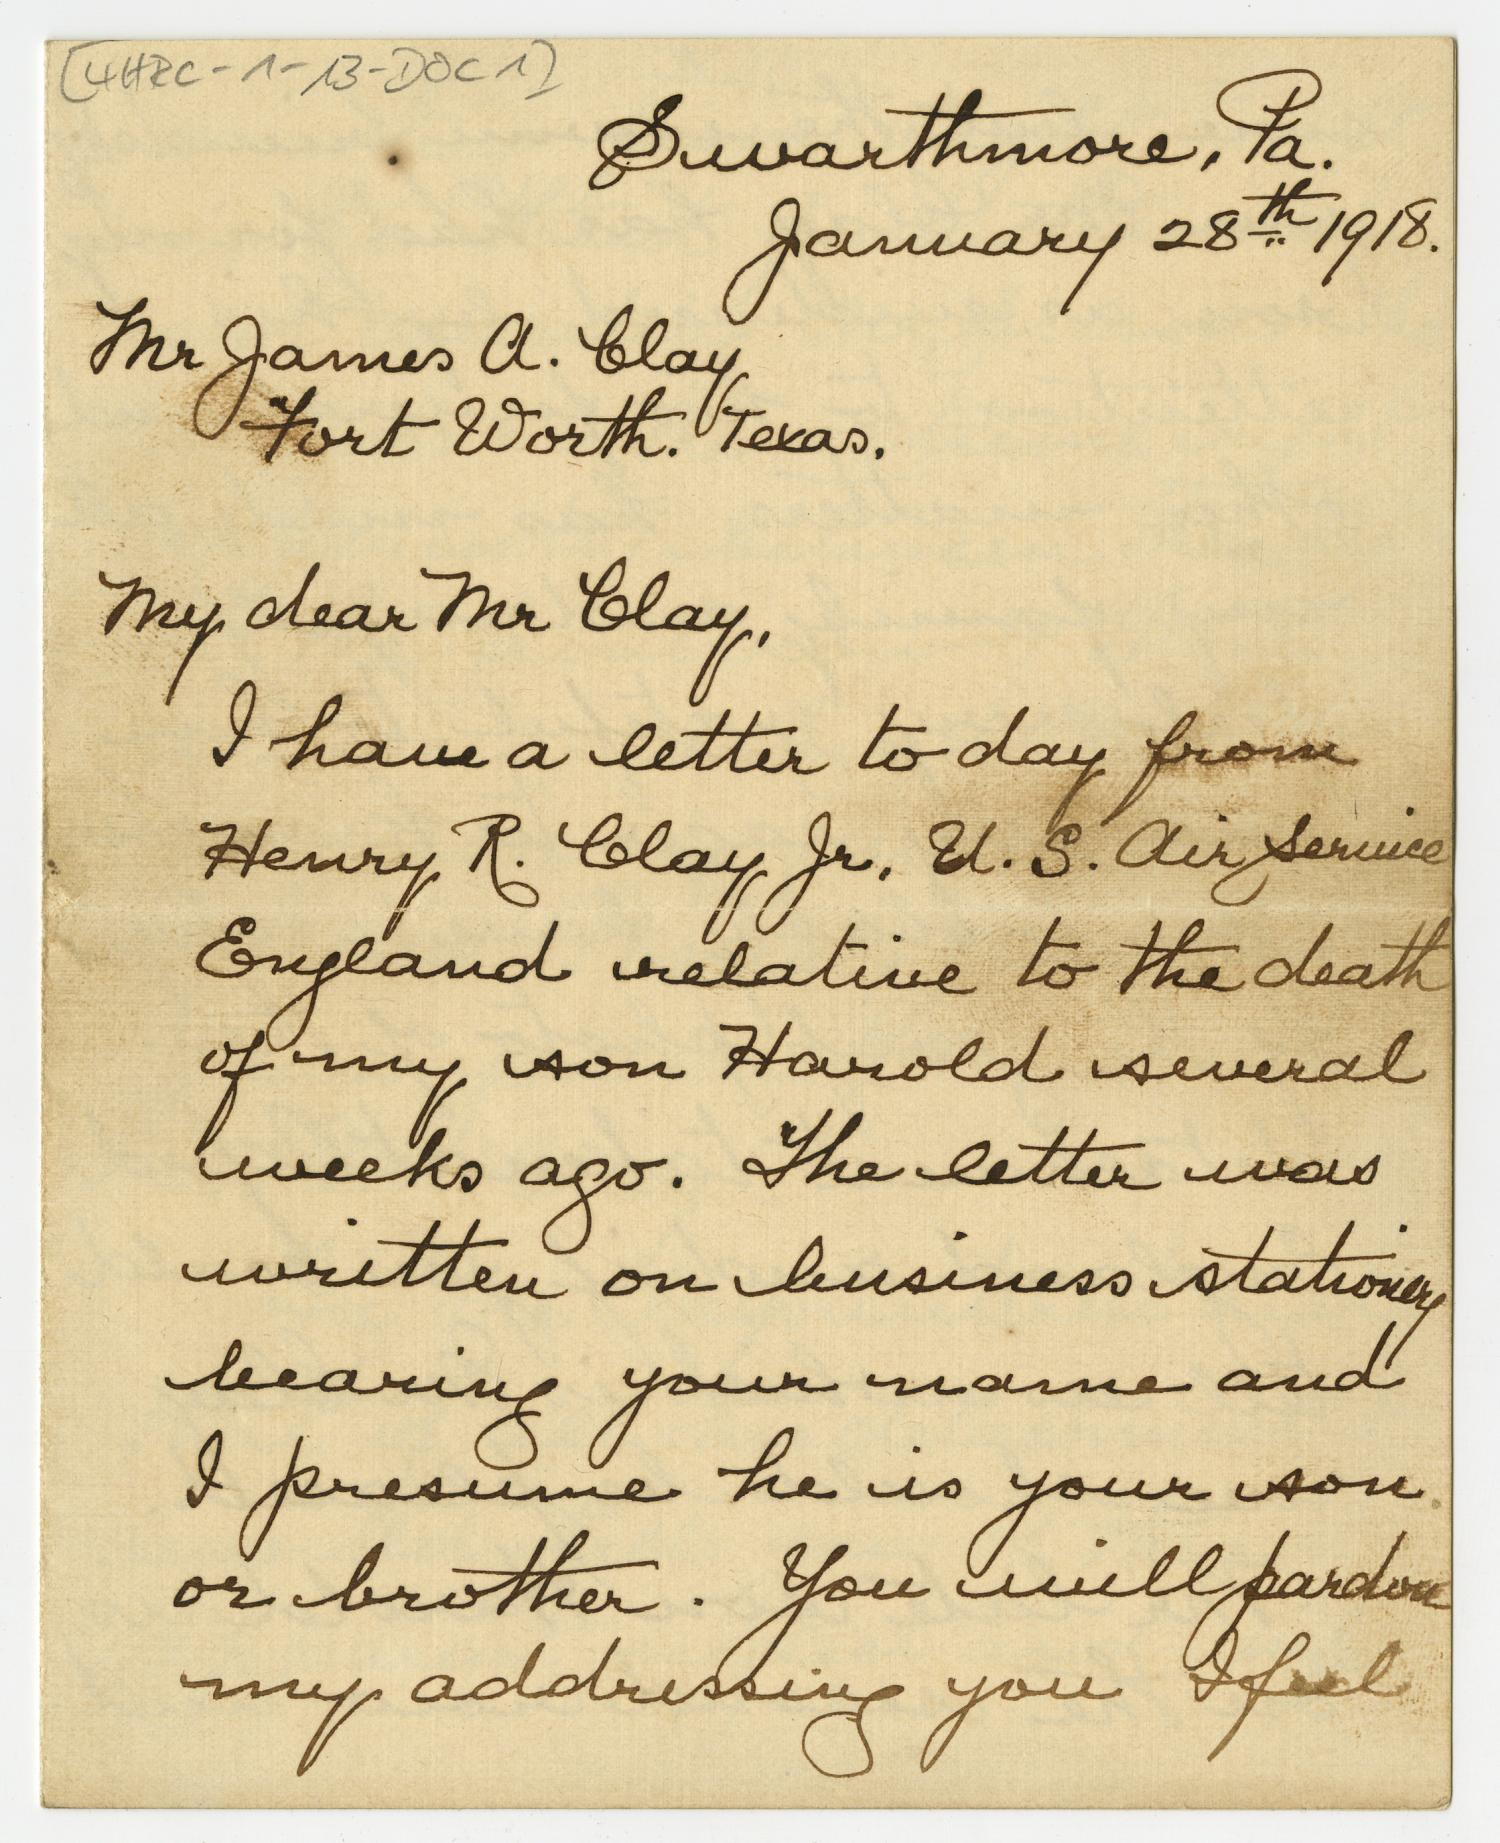 [4HRC-1-13-DOC 1]
Swarthmore, Pa.
January 28th 1918.
Mr James A. Clay
Fort Worth. Texas.
My dear Mr Clay,
I have a letter to day from
Henry R. Clay Jr. U. S. Air Service
England relative to the death
of my son Harold several
weeks ago. The letter was
written on business stationery
bearing your name and
I presume he is your son
or brother. You will pardon
my addressing you I feel